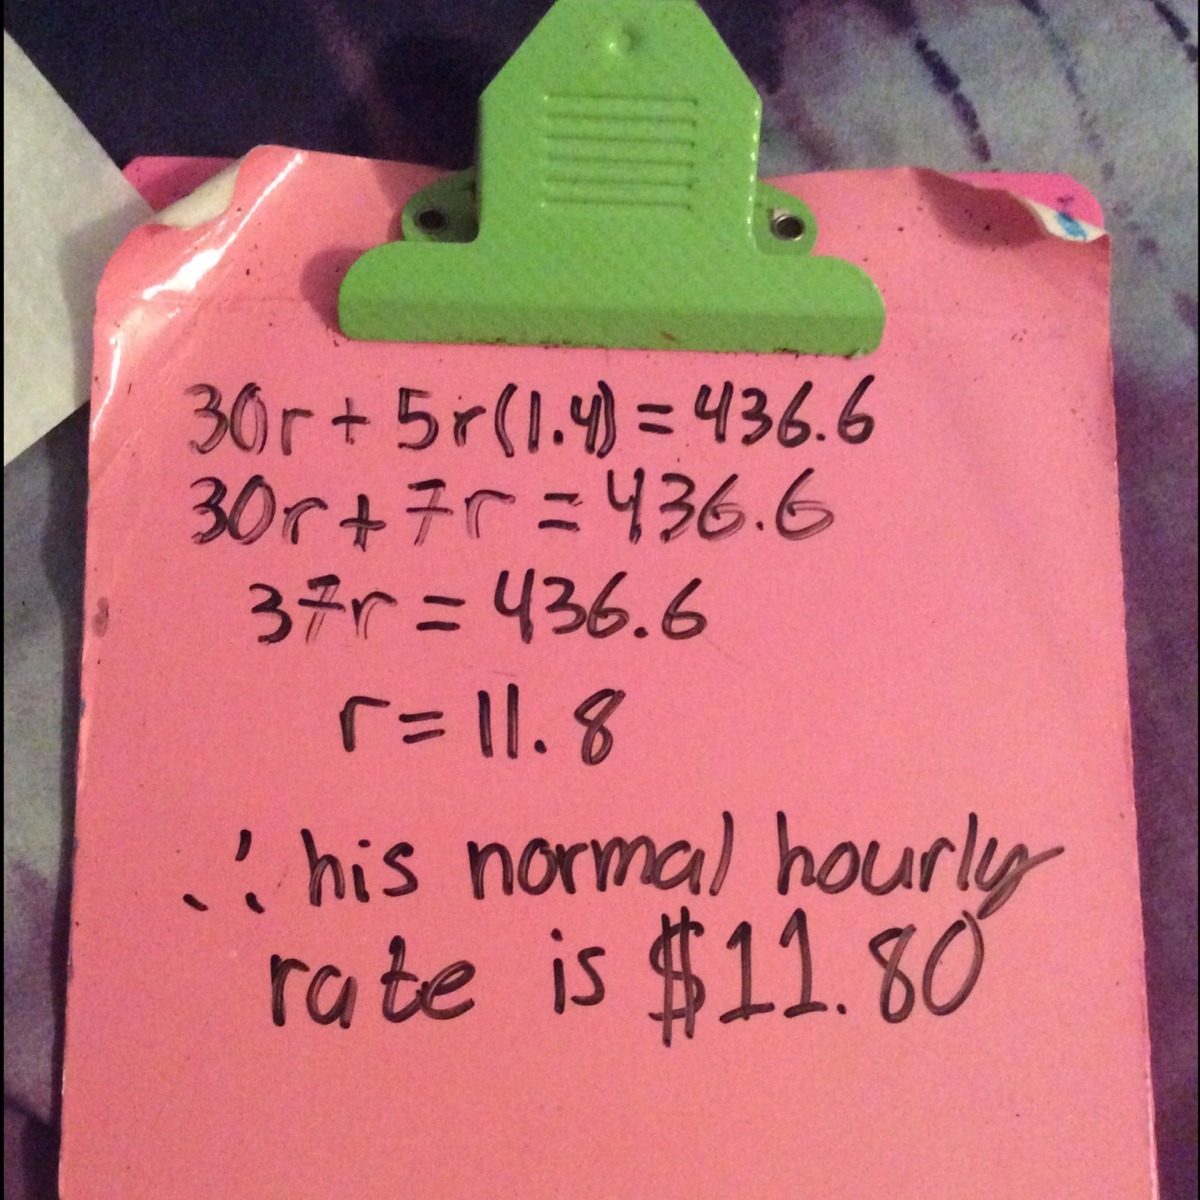 30r + 5r(1.4) = 436.6
30r + 7r = 436.6
37r = 436.6
r = 11.8
∴ his normal hourly
rate is $11.80